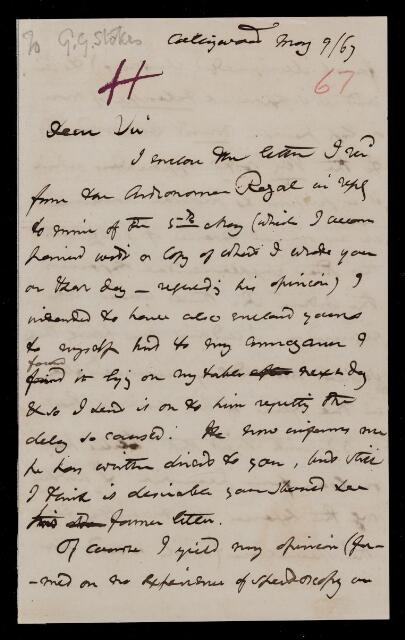 To G.G. Stokes
Collingwood May 9/67
H
67
Dear Sir
I enclose the letter I recd
from the Astronomer Royal in reply
to mine of the 5th May (which I accom
panied with a Copy of what I wrote you
on that day – requesting his opinion) I
intended to have also enclosed yours
to myself but to my annoyance I
found
found it lying on my table after next day
& so I send it on to him regretting the
delay so caused. He now informs me
he has written direct to you, but still
I think is desirable you should see
this the former letter.
Of course I yield my opinion (for-
-med on no experience of spectroscopy on